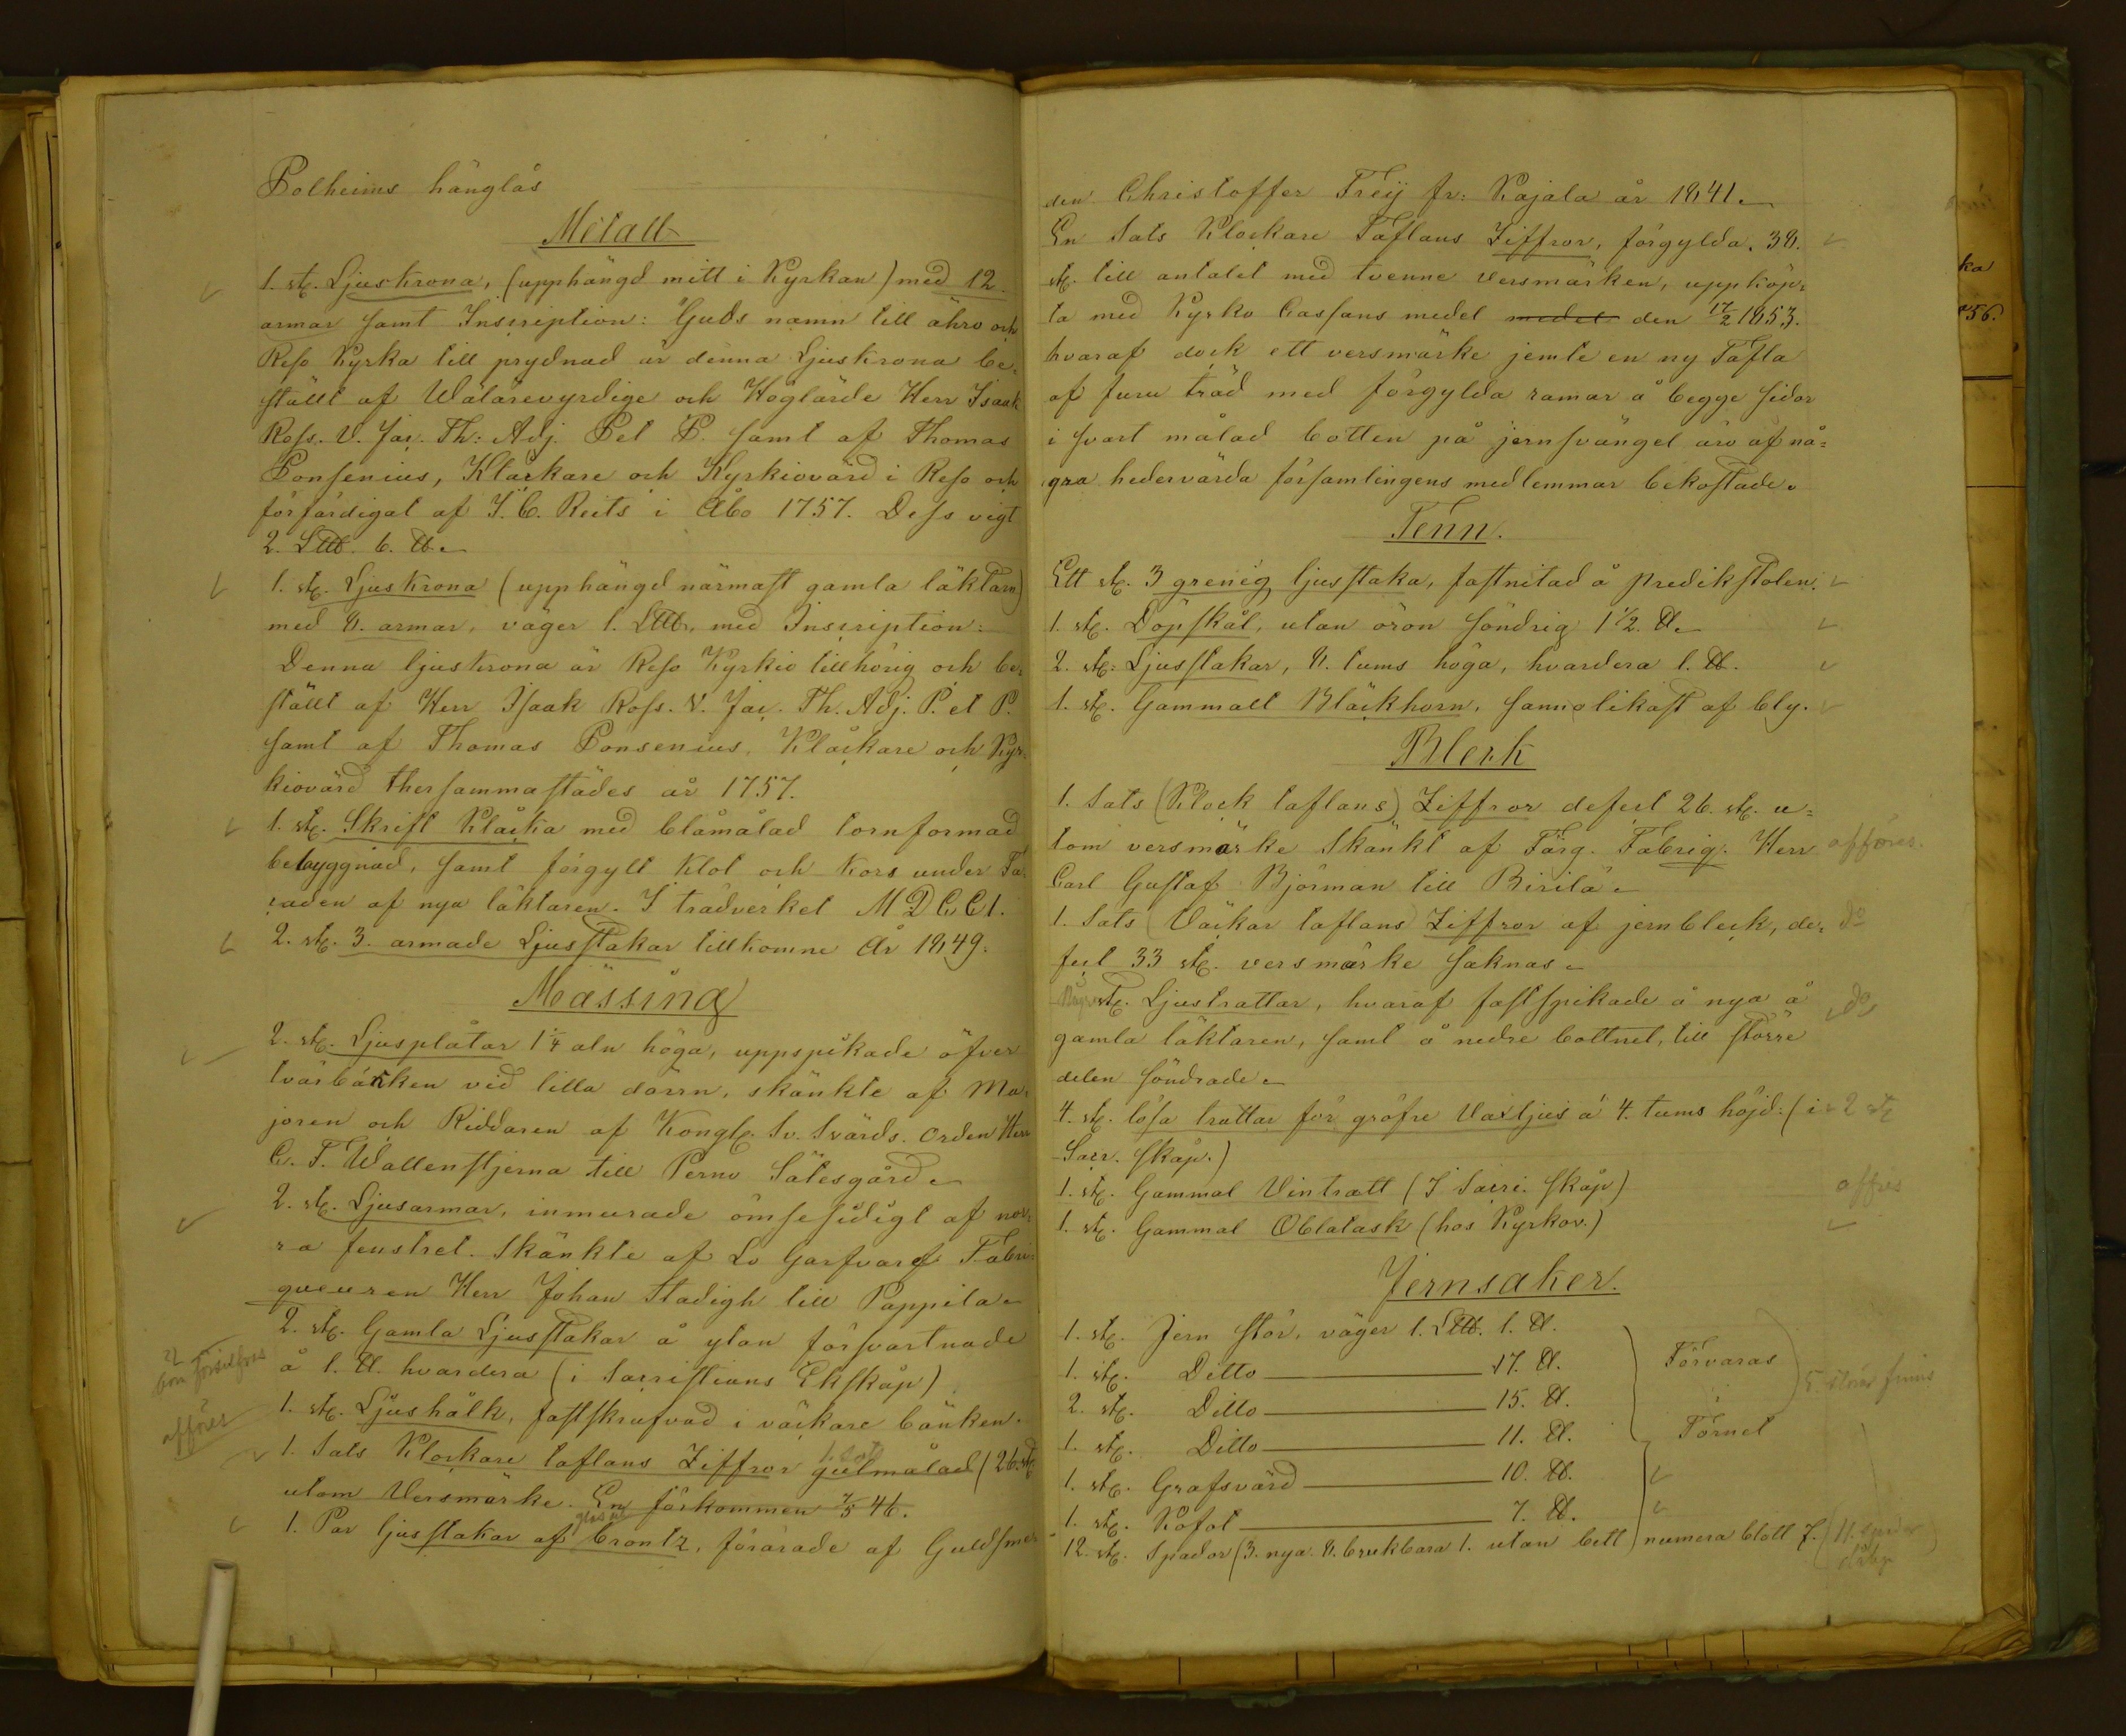 Polheims hänglås
Metall
1. st. Ljuskrona, (upphängd mitt i Kyrkan) med 12.
armar samt Inscription: Guds namn till ähro och
Reso Kyrka till prydnad är denna Ljuskrona be-
ställt af Wälärevyrdige och Höglärde Herr Isaak
Ross. V. Jac. Th: Adj. Pet P. samt af Thomas
Ponsenius, Klåckare och Kyrkiovärd i Reso och
förfärdigat af J. C. Reits i Åbo 1757. Dess vigt
2. L℔. 6. ℔.
1. st. Ljuskrona (upphängd närmast gamla läktarn)
med 8. armar, väger 1. L℔, med Inscription:
Denna ljuskrona är Reso Kyrkio tillhörig och be-
ställt af Herr Isaak Ross. V. Jac. Th. Adj. P. et P.
samt af Thomas Ponsenius, Klåckare och Kyr-
kiovärd thersammastädes år 1757.
1. st. Skrift Klåcka med blåmålad tornformad
bebyggnad, samt förgylt klot och kors under Fa-
caden af nya läktaren. I trädverket MDCCI.
2. st. 3. armade Ljusstakar tillkomne År 1849.
Mässing
2. st. Ljusplåtar 1¼ aln höga, uppspikade öfver
tvärbänken vid lilla dörrn, skänkte af Ma-
joren och Riddaren af Kongl. Sv. Svärds. Orden Herr
C. F. Wallenstjerna till Perno Sätesgård.
2. st. Ljusarmar, inmurade ömsesidigt af nor-
ra fenstret. Skänkte af Lo Garfvare Fabri-
queuren Herr Johan Stadigh till Pappila.
2. st. Gamla Ljusstakar å ytan försvartnade
å 1. ℔. hvardera (i Sacristians Ekskåp)
bör försilfras
1. st. Ljushålk, fastskrufvad i väckare bänken.
afföres
1. Sats Klockare taflans Ziffror gulmålad (26. st.
utom Versmärke. En förkommen 7/5 46.
1. Par ljusstakar af brontz, förärade af Guldsme-
den Christoffer Freij fr: Kajala år 1841.
En Sats Klockare Taflans Ziffror, förgylda. 38.
st. till antalet med tvenne versmärken, uppköp-
ta med Kyrko Cassans medel medel den 17/2 1853.
hvaraf dock ett versmärke jemte en ny Tafla
af furu träd med förgylda ramar å begge sidor
i svart målad botten på jernsvängel äro af nå-
gra hedervärda församlingens medlemmar bekostade.
Tenn.
Ett st. 3 grenig ljusstaka, fastnitad å predikstolen.
1. st. Döpskål, utan öron söndrig 1½. ℔.
2. st: Ljusstakar, 8. tums höga, hvardera 1. ℔.
1. st. Gammalt Bläckhorn, sannolikast af bly.
Bleck
1. Sats (Klock taflans) Ziffror defect 26. st. u-
tom versmärke Skänkt af Färg. Fabriq. Herr afföres.
Carl Gustaf Björman till Birilä.
1. Sats Väckar taflans Ziffror af jernbleck, de- do
fect 33 st. versmärke saknas.
st. Ljustrattar, hvaraf fastspikade å nya å do
gamla läktaren, samt å nedre bottnet, till större
delen söndrade.
4. st. lösa trattar för gröfre Vaxljus à 4. tums höjd: (i 2 st
Sacr. skåp.)
1. st. Gammal Vintratt (I Sacri. skåp) affres
1. st. Gammal Oblatask (hos Kyrkov.)
Jernsaker.
1. st. Jern stör, väger 1. L℔. 1. ℔.
1. st. Ditto 17. ℔. Förvaras
2. st. Ditto 15. ℔. i 5 störar finnes
1. st. Ditto 11. ℔. Tornet
1. st. Grafsvärd 10. ℔.
1. st. Kofot 7. ℔.
12. st. Spador (3. nya. 8. brukbara 1. utan bett) numera blott 7. (11. spador
ka
856.